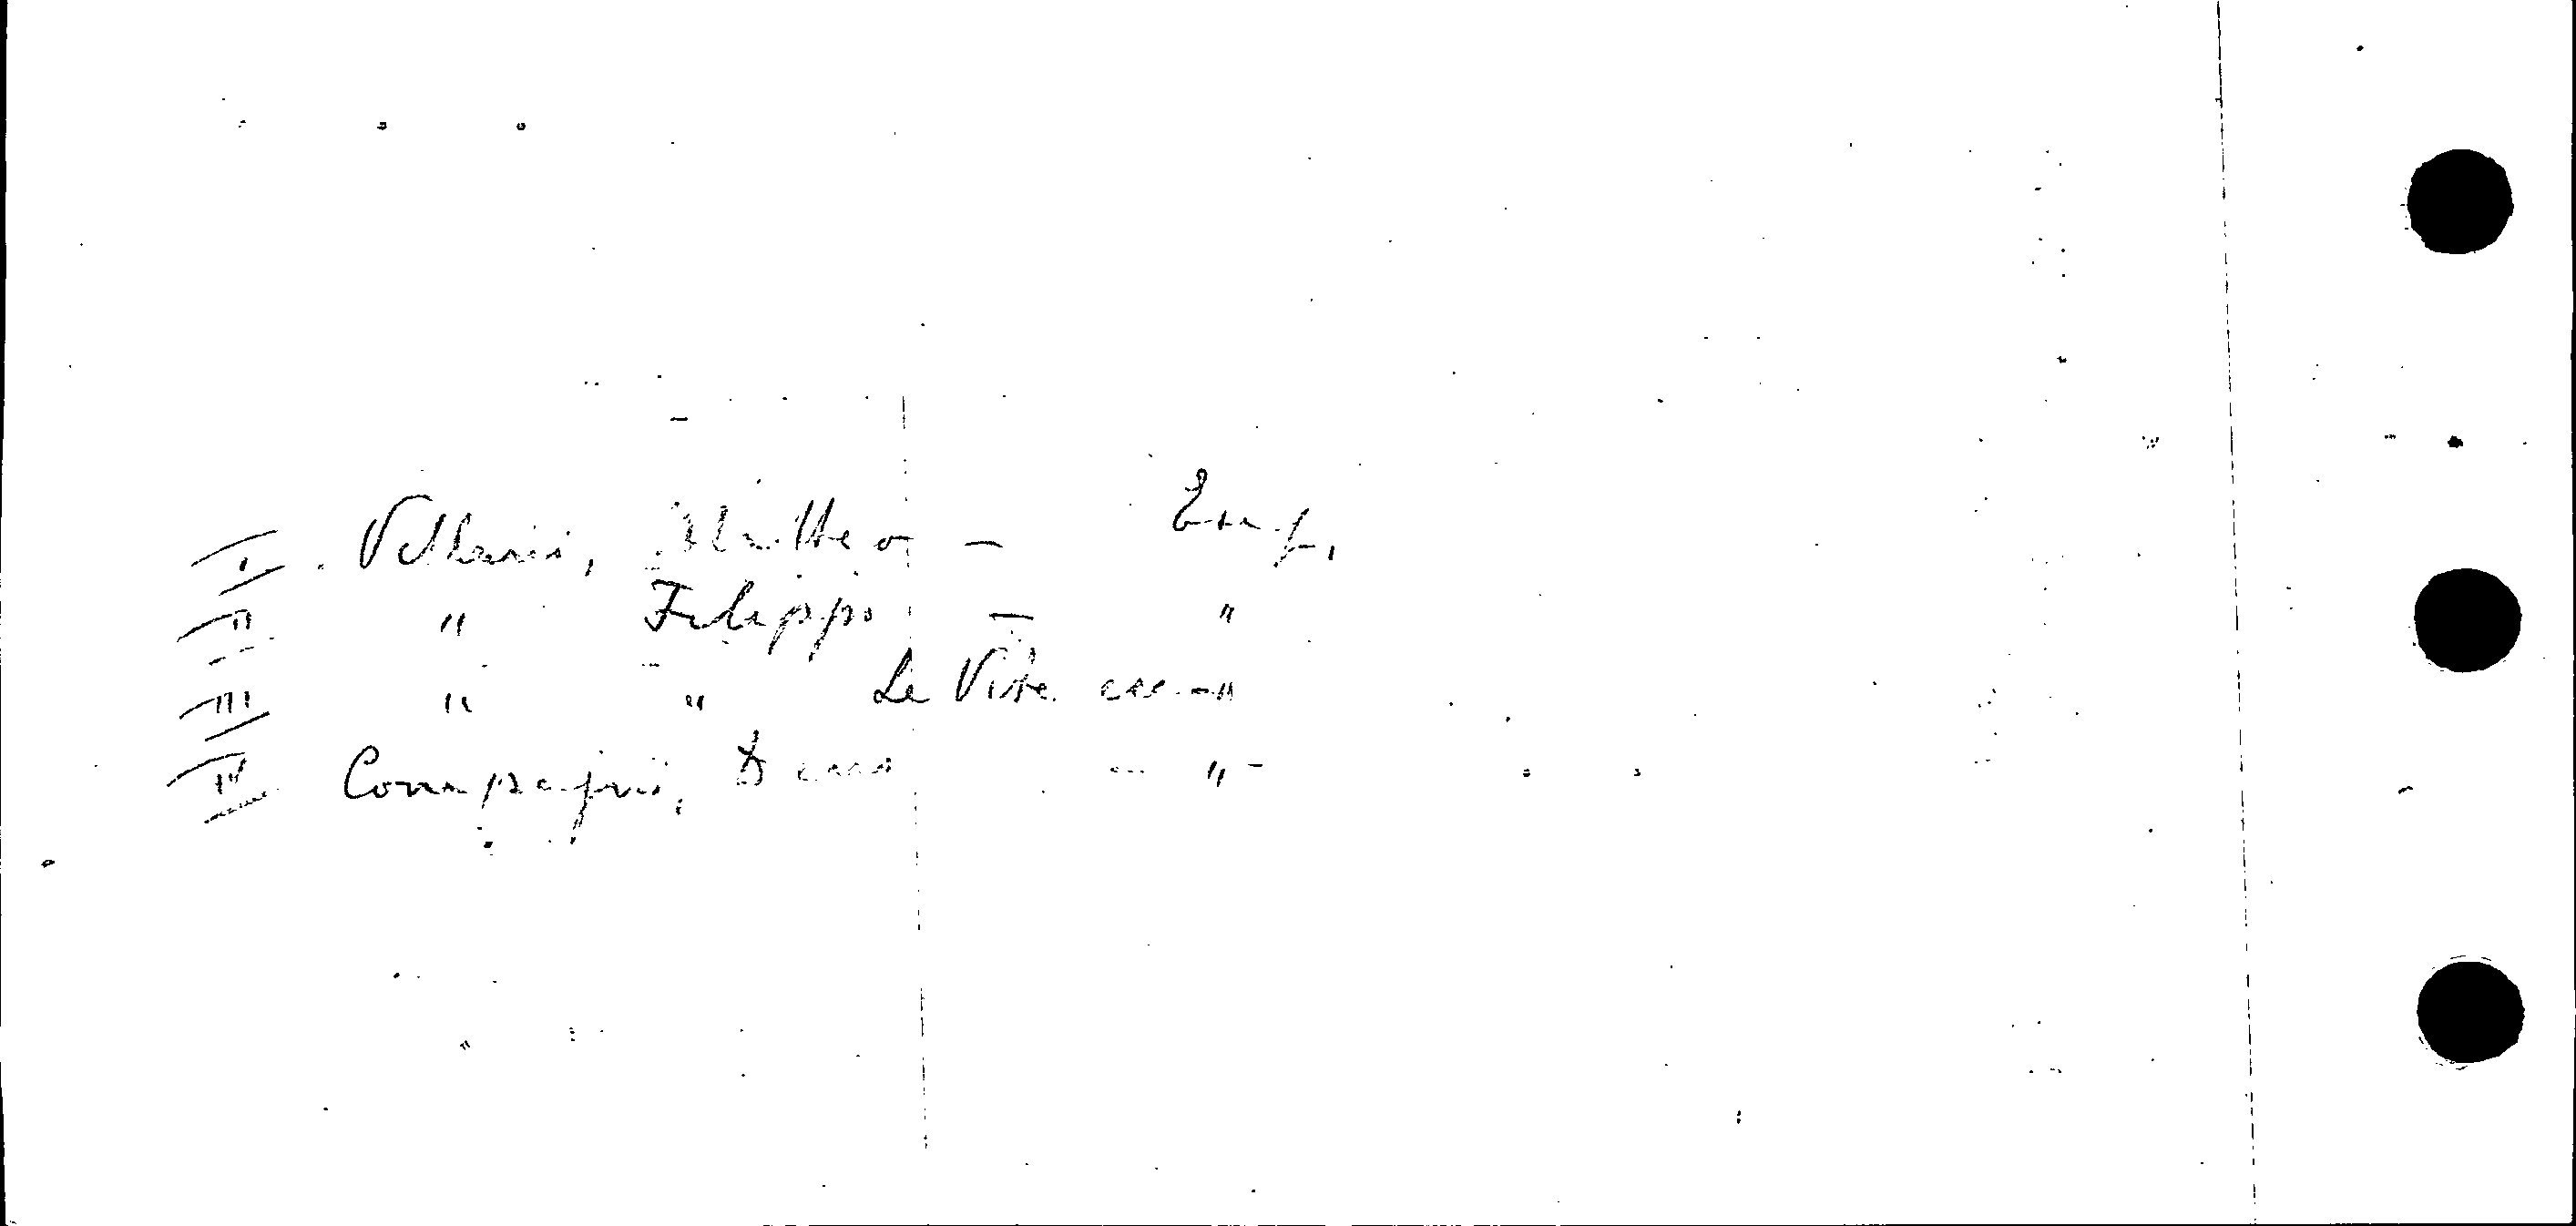 I. Villani, Matteo —
II " Filippo — "
III " " Le Vite — "
IV Compagni, Dino — " —